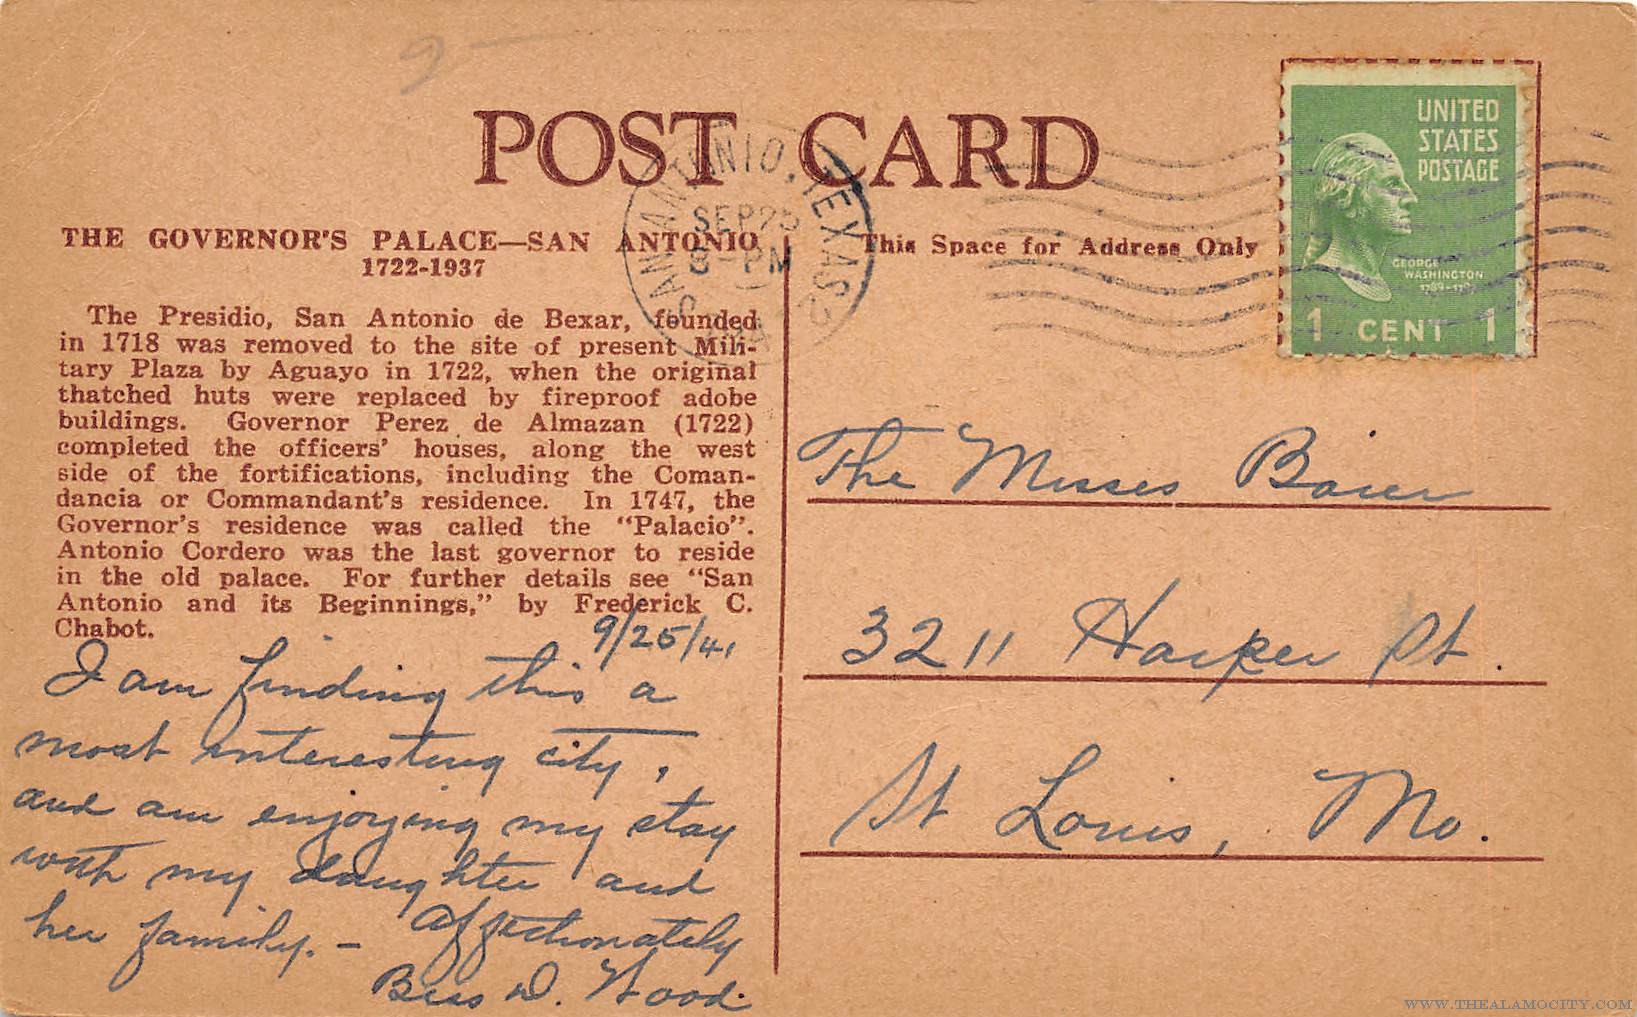 9-
POST CARD
UNITED
STATES
POSTAGE
GEORGE
WASHINGTON
1 CENT 1
SAN ANTONIO, TEXAS
SEP 25
8-PM
THE GOVERNOR'S PALACE—SAN ANTONIO
1722-1937
This Space for Address Only
The Presidio, San Antonio de Bexar, founded
in 1718 was removed to the site of present Mili-
tary Plaza by Aguayo in 1722, when the original
thatched huts were replaced by fireproof adobe
buildings. Governor Perez de Almazan (1722)
completed the officers' houses, along the west
side of the fortifications, including the Coman-
dancia or Commandant's residence. In 1747, the
Governor's residence was called the "Palacio".
Antonio Cordero was the last governor to reside
in the old palace. For further details see "San
Antonio and its Beginnings," by Frederick C.
Chabot.
9/25/41
I am finding this a
most interesting city,
and am enjoying my stay
with my daughter and
her family. - Affectionately
Bess D. Wood.
The Misses Baier
3211 Harper St.
St Louis, Mo.
WWW.THEALAMOCITY.COM